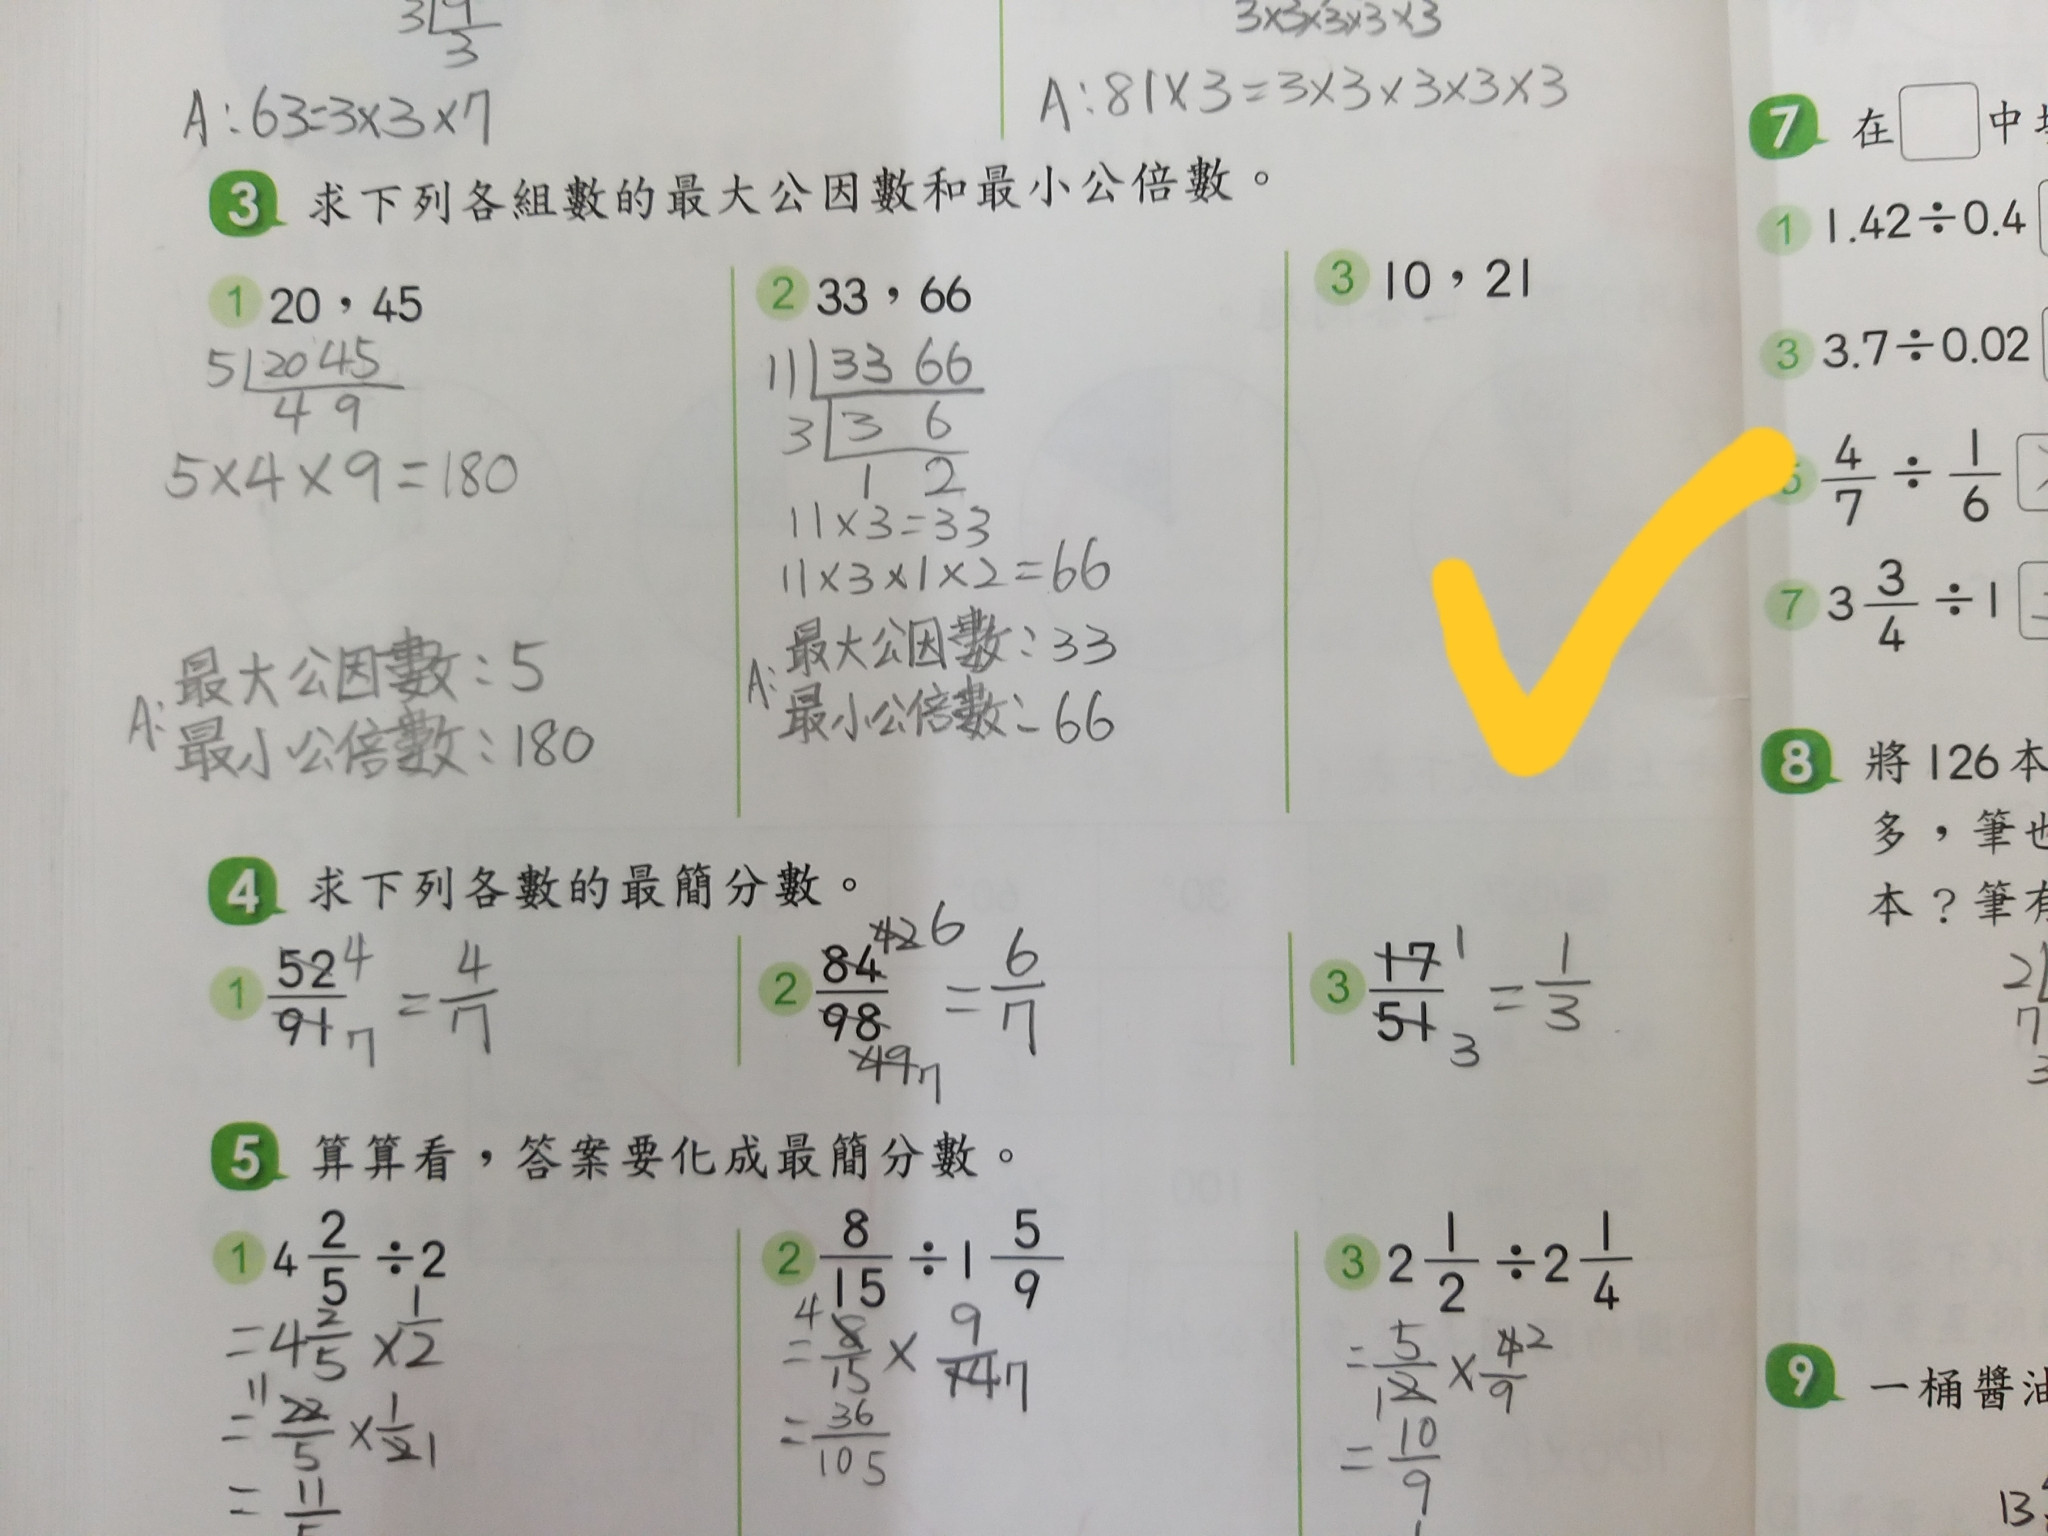 3 9
3
A:63=3×3×7
3×3×3×3×3
A:81×3=3×3×3×3×3
3 求下列各組數的最大公因數和最小公倍數。
1 20,45
5 20 45
4 9
5×4×9=180
A: 最大公因數:5
最小公倍數:180
2 33,66
11 33 66
3 3 6
1 2
11×3=33
11×3×1×2=66
A: 最大公因數:33
最小公倍數:66
3 10,21
4 求下列各數的最簡分數。
1 52/91 4 7 = 4/7
2 84/98 42 6 49 7 = 6/7
3 17/51 1 3 = 1/3
5 算算看,答案要化成最簡分數。
1 4 2/5 ÷2
= 4 2/5 × 1/2
= 11 22/5 × 1/2 1
= 11/5
2 8/15 ÷ 1 5/9
= 4 8/15 × 9/14 7
= 36/105
3 2 1/2 ÷ 2 1/4
= 5/2 1 × 4/9 2
= 10/9
7 在 中
1 1.42÷0.4
3 3.7÷0.02
5 4/7 ÷ 1/6
7 3 3/4 ÷1
8 將126本
多,筆也
本?筆有
2
7
3
9 一桶醬油
13